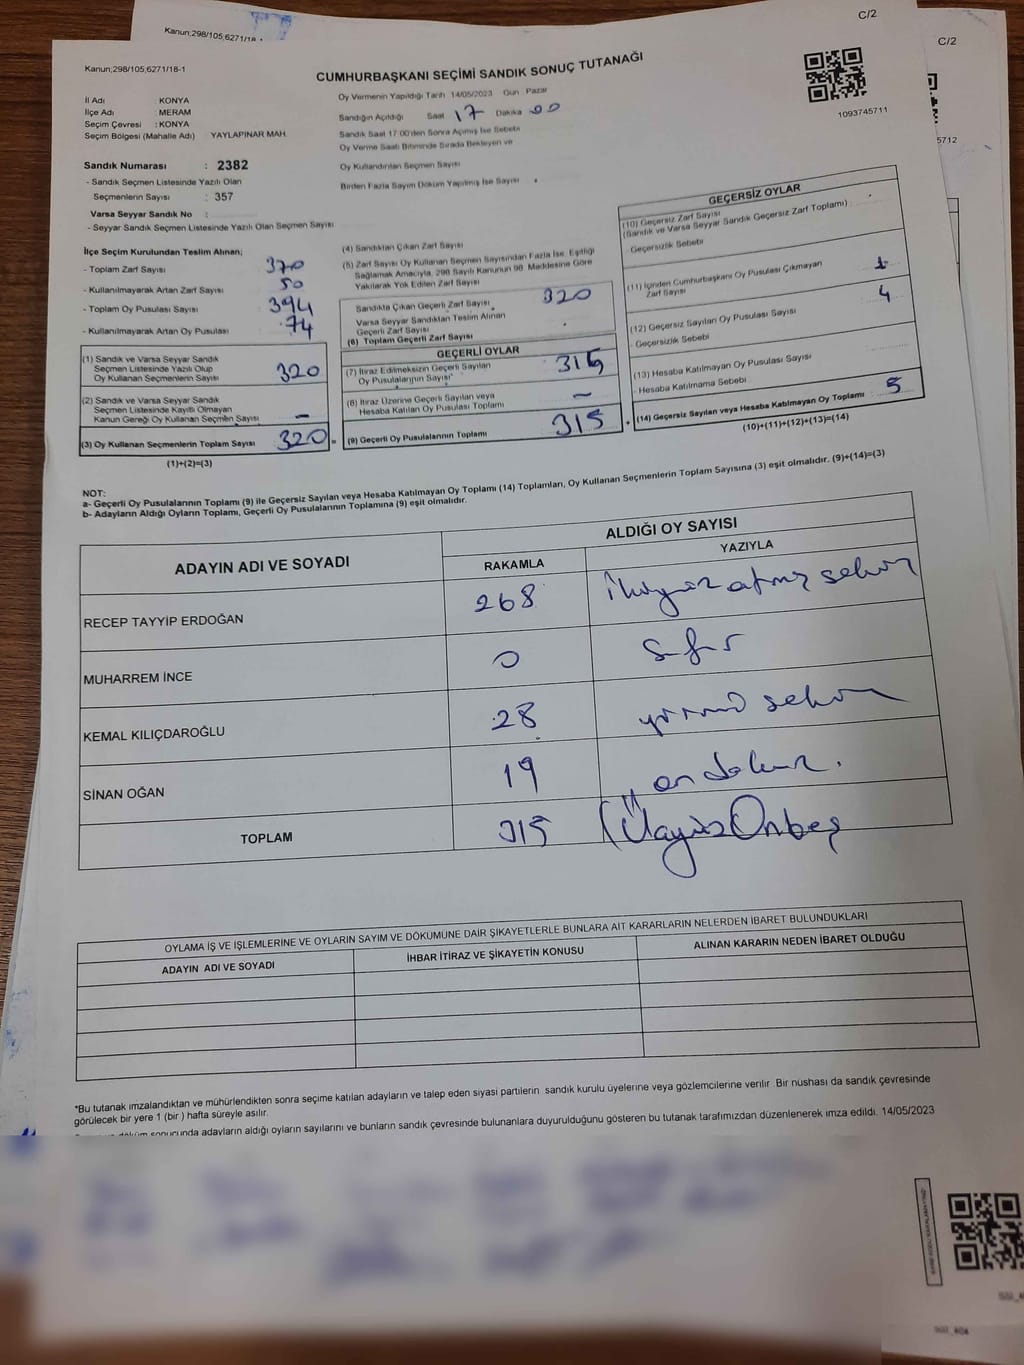 Kanun;298/105,6271/18-1
C/2
C/2
Kanun;298/105,6271/18-1
CUMHURBAŞKANI SEÇİMİ SANDIK SONUÇ TUTANAĞI
1093745711
5712
İl Adı : KONYA
İlçe Adı : MERAM
Seçim Çevresi : KONYA
Seçim Bölgesi (Mahalle Adı) YAYLAPINAR MAH.
Oy Vermenin Yapıldığı Tarih 14/05/2023 Gün Pazar
Sandığın Açıldığı Saat 17 Dakika 00
Sandık Saat 17:00'den Sonra Açılmış İse Sebebi
Oy Verme Saati Bitiminde Sırada Bekleyen ve
Oy Kullandırılan Seçmen Sayısı
Birden Fazla Sayım Döküm Yapılmış İse Sayısı
Sandık Numarası : 2382
- Sandık Seçmen Listesinde Yazılı Olan
Seçmenlerin Sayısı : 357
Varsa Seyyar Sandık No :
- Seyyar Sandık Seçmen Listesinde Yazılı Olan Seçmen Sayısı
İlçe Seçim Kurulundan Teslim Alınan;
- Toplam Zarf Sayısı 370
- Kullanılmayarak Artan Zarf Sayısı 50
- Toplam Oy Pusulası Sayısı 394
- Kullanılmayarak Artan Oy Pusulası 74
(1) Sandık ve Varsa Seyyar Sandık
Seçmen Listesinde Yazılı Olup
Oy Kullanan Seçmenlerin Sayısı 320
(2) Sandık ve Varsa Seyyar Sandık
Seçmen Listesinde Kayıtlı Olmayan
Kanun Gereği Oy Kullanan Seçmen Sayısı -
(3) Oy Kullanan Seçmenlerin Toplam Sayısı 320
(1)+(2)=(3)
(4) Sandıktan Çıkan Zarf Sayısı
(5) Zarf Sayısı Oy Kullanan Seçmen Sayısından Fazla İse, Eşitliği
Sağlamak Amacıyla, 298 Sayılı Kanunun 98. Maddesine Göre
Yakılarak Yok Edilen Zarf Sayısı
Sandıkta Çıkan Geçerli Zarf Sayısı 320
Varsa Seyyar Sandıktan Teslim Alınan
Geçerli Zarf Sayısı
(6) Toplam Geçerli Zarf Sayısı
GEÇERLİ OYLAR
(7) İtiraz Edilmeksizin Geçerli Sayılan
Oy Pusulalarının Sayısı 315
(8) İtiraz Üzerine Geçerli Sayılan veya
Hesaba Katılan Oy Pusulası Toplamı -
(9) Geçerli Oy Pusulalarının Toplamı 315
GEÇERSİZ OYLAR
(10) Geçersiz Zarf Sayısı
(Sandık ve Varsa Seyyar Sandık Geçersiz Zarf Toplamı)
- Geçersizlik Sebebi
(11) İçinden Cumhurbaşkanı Oy Pusulası Çıkmayan
Zarf Sayısı 1
(12) Geçersiz Sayılan Oy Pusulası Sayısı 4
- Geçersizlik Sebebi
(13) Hesaba Katılmayan Oy Pusulası Sayısı
- Hesaba Katılmama Sebebi
(14) Geçersiz Sayılan veya Hesaba Katılmayan Oy Toplamı 5
(10)+(11)+(12)+(13)=(14)
NOT:
a- Geçerli Oy Pusulalarının Toplamı (9) ile Geçersiz Sayılan veya Hesaba Katılmayan Oy Toplamı (14) Toplamları, Oy Kullanan Seçmenlerin Toplam Sayısına (3) eşit olmalıdır. (9)+(14)=(3)
b- Adayların Aldığı Oyların Toplamı, Geçerli Oy Pusulalarının Toplamına (9) eşit olmalıdır.
ADAYIN ADI VE SOYADI
ALDIĞI OY SAYISI
RAKAMLA YAZIYLA
RECEP TAYYİP ERDOĞAN 268 İkiyüz atmış sekiz
MUHARREM İNCE 0 Sıfır
KEMAL KILIÇDAROĞLU 28 yirmi sekiz
SİNAN OĞAN 19 on dokuz.
TOPLAM 315 (Üçyüz Onbeş
OYLAMA İŞ VE İŞLEMLERİNE VE OYLARIN SAYIM VE DÖKÜMÜNE DAİR ŞİKAYETLERLE BUNLARA AİT KARARLARIN NELERDEN İBARET BULUNDUKLARI
ADAYIN ADI VE SOYADI İHBAR İTİRAZ VE ŞİKAYETİN KONUSU ALINAN KARARIN NEDEN İBARET OLDUĞU
*Bu tutanak imzalandıktan ve mühürlendikten sonra seçime katılan adayların ve talep eden siyasi partilerin sandık kurulu üyelerine veya gözlemcilerine verilir. Bir nüshası da sandık çevresinde
görülecek bir yere 1 (bir) hafta süreyle asılır.
döküm sonucunda adayların aldığı oyların sayılarını ve bunların sandık çevresinde bulunanlara duyurulduğunu gösteren bu tutanak tarafımızdan düzenlenerek imza edildi. 14/05/2023